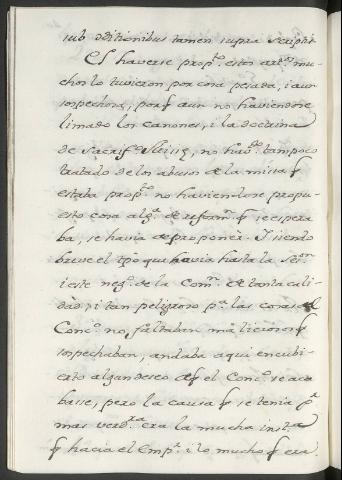 sub additionibus tamen supra Scriptis
El haverse prop.to estos art.os mu-
chos lo tuvieron por cosa pesada, i aun
sospechosa, porq aun no haviendose
limado los canones, i la doctrina
de Sacrif.o Missę, no hav.do tampoco
tratado de los abusos de la missa q
estaba prop.to no haviendose propu-
esto cosa alg.a de reform.n q se espera
ba, se havia de proponer. I siendo
breve el tpo que havia hasta la Ses.on
i este neg.o de la Com.n de tanta cali-
dad, i tan peligroso p.a las cosas del
Conc.o no faltaban maliciosos q
sospechaban, andaba aqui encubi-
erto algun deseo de q el Conc.o se aca
basse, pero la causa q se tenia p.r
mas verd.ra era la mucha inst.a
q hacia el Emp.r i lo mucho q era